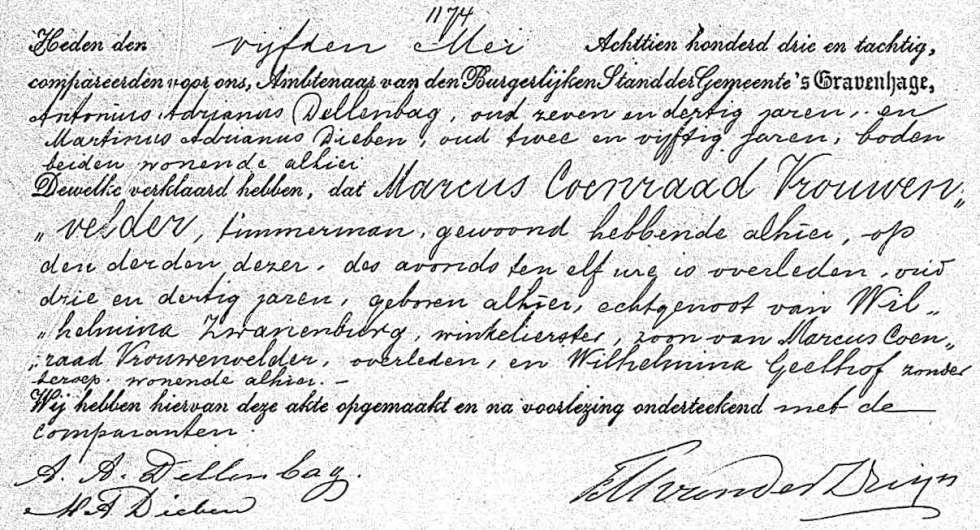 1174
Heden den vijfden Mei Achttien honderd drie en tachtig,
compareerden voor ons, Ambtenaar van den Burgerlijken Stand der Gemeente 's Gravenhage,
Antonius Adrianus Dellenbag, oud zeven en dertig jaren, en
Martinus Adrianus Dieben, oud twee en vijftig jaren, boden
beiden wonende alhier
Dewelke verklaard hebben, dat Marcus Coenraad Vrouwen„
„velder, timmerman, gewoond hebbende alhier, op
den derden dezer, des avonds ten elf ure is overleden, oud
drie en dertig jaren, geboren alhier, echtgenoot van Wil„
„helmina Zwanenburg, winkelierster, zoon van Marcus Coen„
„raad Vrouwenvelder, overleden, en Wilhelmina Geelhof zonder
beroep. wonende alhier. –
Wij hebben hiervan deze akte opgemaakt en na voorlezing onderteekend met de
comparanten.
A. A. Dellenbag.
M A Dieben